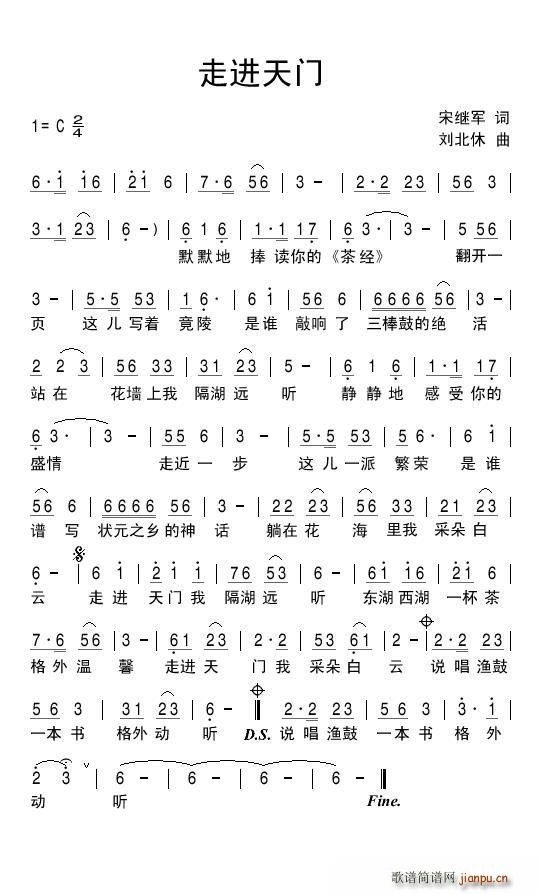 走进天门
宋继军 词
1= C 2/4
刘北休 曲
6·1 16 | 21 6 | 7·6 56 | 3 - | 2·2 23 | 56 3 |
3·1 23 | 6 -) | 6 1 6 | 1·1 17 | 6 3· | 3 - | 5 56 |
默默地 捧 读你的《茶经》 翻开一
3 - | 5·5 53 | 1 6· | 6 1 | 56 6 | 6666 56 | 3 - |
页 这儿写着 竟陵 是谁 敲响了 三棒鼓的绝 活
2 2 3 | 56 33 | 31 23 | 5 - | 6 1 6 | 1·1 17 |
站在 花墙上我 隔湖远 听 静静地 感受你的
6 3· | 3 - | 55 6 | 5·5 53 | 56· | 6 1 |
盛情 走近一 步 这儿一派 繁荣 是谁
56 6 | 6666 56 | 3 - | 22 23 | 56 33 | 21 23 |
谱 写 状元之乡的神 话 躺在花 海 里我 采朵白
6 - | 6 1 | 2 1 1 | 76 53 | 6 - | 16 16 | 21 6 |
云 走进 天门我 隔湖远 听 东湖西湖 一杯茶
7·6 56 | 3 - | 61 23 | 2·2 23 | 55 61 | 2 - | 2·2 23 |
格外温 馨 走进天 门我 采朵白 云 说唱渔鼓
56 3 | 31 23 | 6 - ‖ 2·2 23 | 56 3 | 3·1 |
一本书 格外动 听 D.S. 说唱渔鼓 一本书 格外
2 3 ∨ | 6 - | 6 - | 6 - | 6 - ‖
动 听 Fine.
歌谱简谱网
jianpu.cn